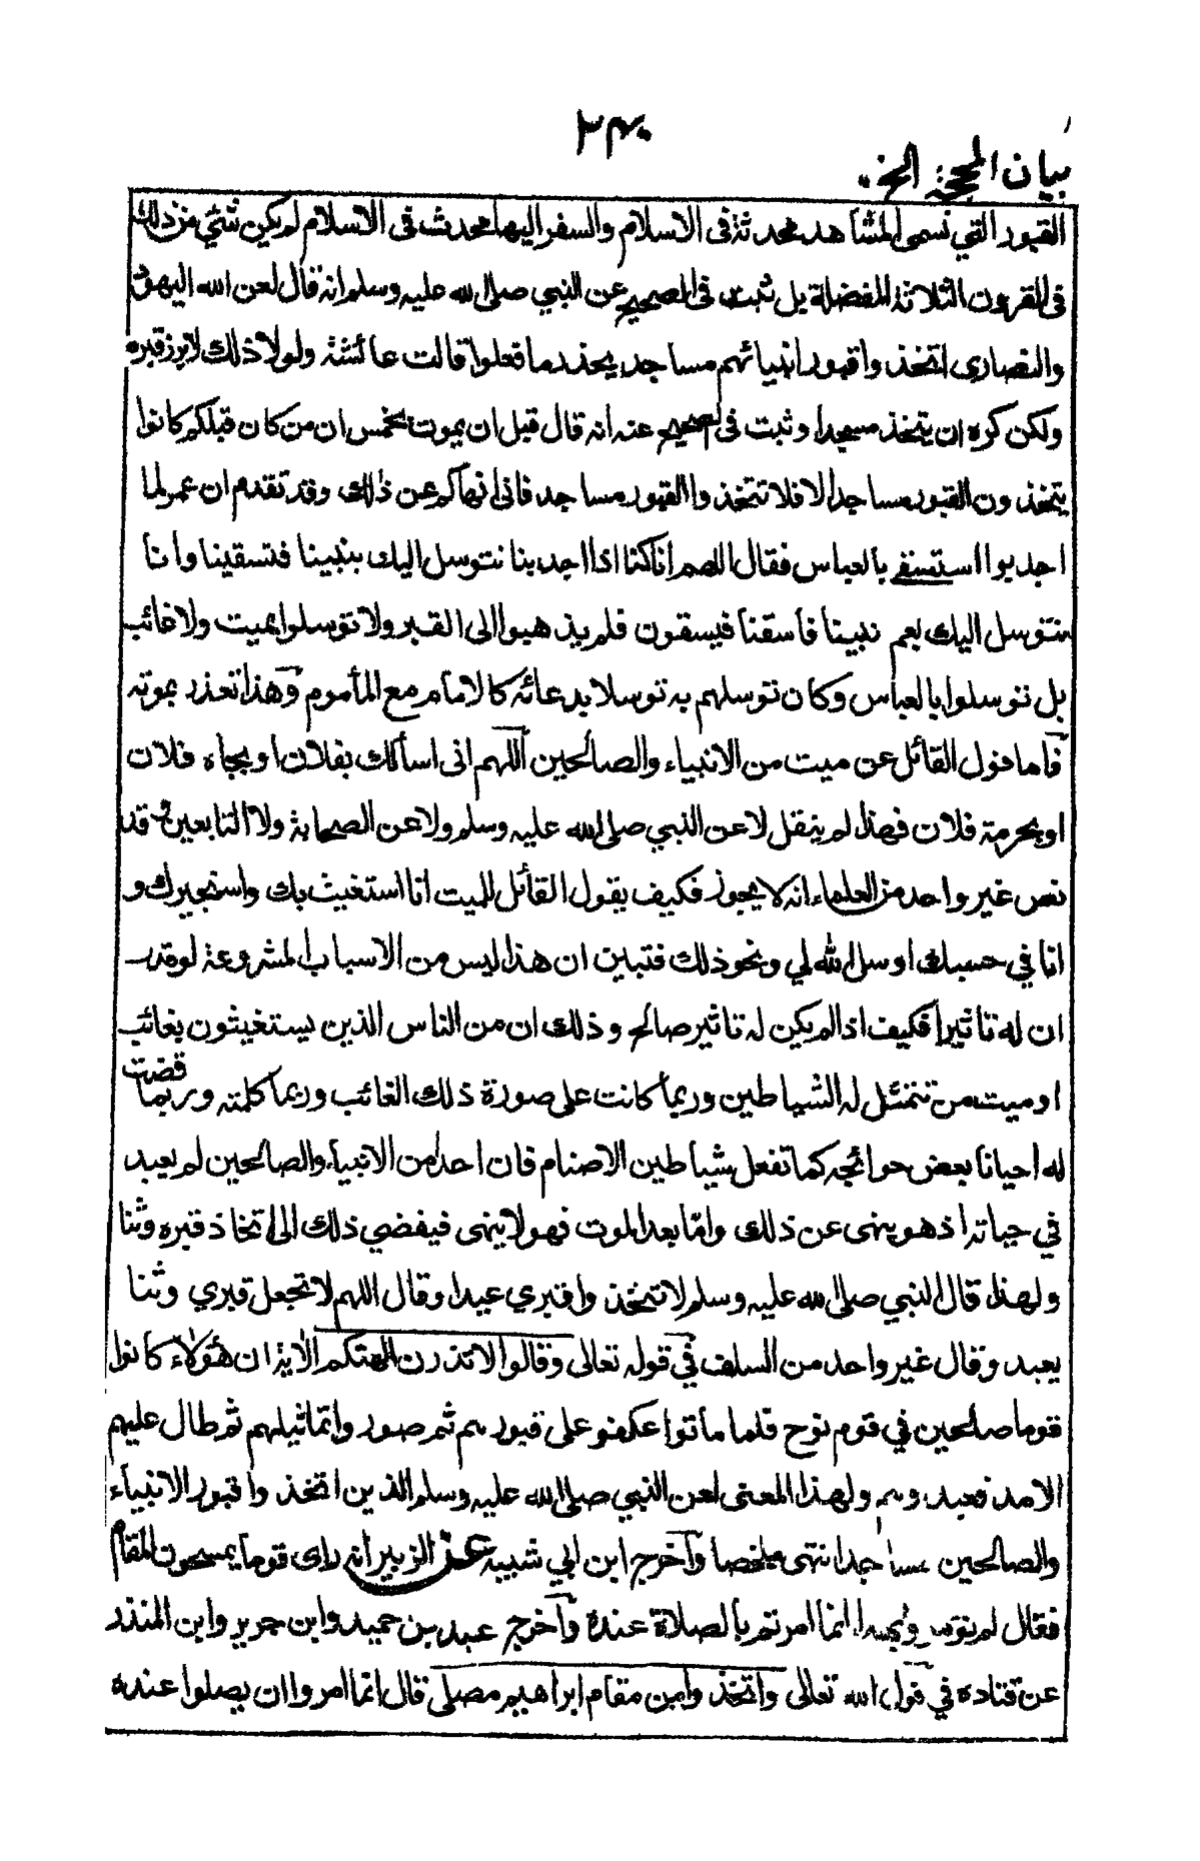 ٢٣٠
بيان المحجة الخ
القبور التي تسمى المشاهد محدثة في الاسلام والسفر اليها محدث في الاسلام لم يكن شئي من ذلك
في القرون الثلاثة المفضلة بل ثبت في الصحيح عن النبي صلى الله عليه وسلم انه قال لعن الله اليهود
والنصارى اتخذوا قبور انبيائهم مساجد يحذر ما فعلوا قالت عائشة ولولا ذلك لابرز قبره
ولكن كره ان يتخذ مسجدا وثبت في الصحيح عنه انه قال قبل ان يموت بخمس ان من كان قبلكم كانوا
يتخذون القبور مساجد الا فلا تتخذوا القبور مساجد فاني انهاكم عن ذلك وقد تقدم ان عمر لما
اجدبوا استسقى بالعباس فقال اللهم انا كنا اذا اجدبنا نتوسل اليك بنبينا فتسقينا وانا
نتوسل اليك بعم نبينا فاسقنا فيسقون فلم يذهبوا الى القبر ولا توسلوا بميت ولا غائب
بل توسلوا بالعباس وكان توسلهم به توسلا بدعائه كالامام مع المأموم وهذا تعذر بموته
فاما قول القائل عن ميت من الانبياء والصالحين اللهم اني اسألك بفلان او بجاه فلان
او بحرمة فلان فهذا لم ينقل لا عن النبي صلى الله عليه وسلم ولا عن الصحابة ولا التابعين وقد
نص غير واحد من العلماء انه لا يجوز فكيف بقول القائل للميت انا استغيث بك واستجيرك و
انا في حسبك او سل الله لي ونحو ذلك فتبين ان هذا ليس من الاسباب المشروعة لو قدر
ان له تاثيرا فكيف اذا لم يكن له تاثير صالح وذلك ان من الناس الذين يستغيثون بغائب
او ميت من تتمثل له الشياطين وربما كانت على صورة ذلك الغائب وربما كلمته وربما قضت
له احيانا بعض حوائجه كما تفعل شياطين الاصنام فان احدا من الانبياء والصالحين لم يعبد
في حياته اذ هو ينهى عن ذلك واما بعد الموت فهو لا ينهى فيفضي ذلك الى اتخاذ قبره وثنا
ولهذا قال النبي صلى الله عليه وسلم لا تتخذوا قبري عيدا وقال اللهم لا تجعل قبري وثنا
يعبد وقال غير واحد من السلف في قوله تعالى وقالوا لا تذرن الهتكم الاية ان هؤلاء كانوا
قوما صالحين في قوم نوح فلما ماتوا عكفو على قبورهم ثم صوروا تماثيلهم ثم طال عليهم
الامد فعبدوهم ولهذا المعنى لعن النبي صلى الله عليه وسلم الذين اتخذوا قبور الانبياء
والصالحين مساجد انتهى ملخصا وأخرج ابن ابي شيبه عن الزبير انه راى قوما يمسحون المقام
فقال لم تؤمروا بهذا انما امرتم بالصلاة عنده وأخرج عبد بن حميد وابن جرير وابن المنذر
عن قتاده في قول الله تعالى واتخذوا من مقام ابراهيم مصلى قال انما امروا ان يصلوا عنده